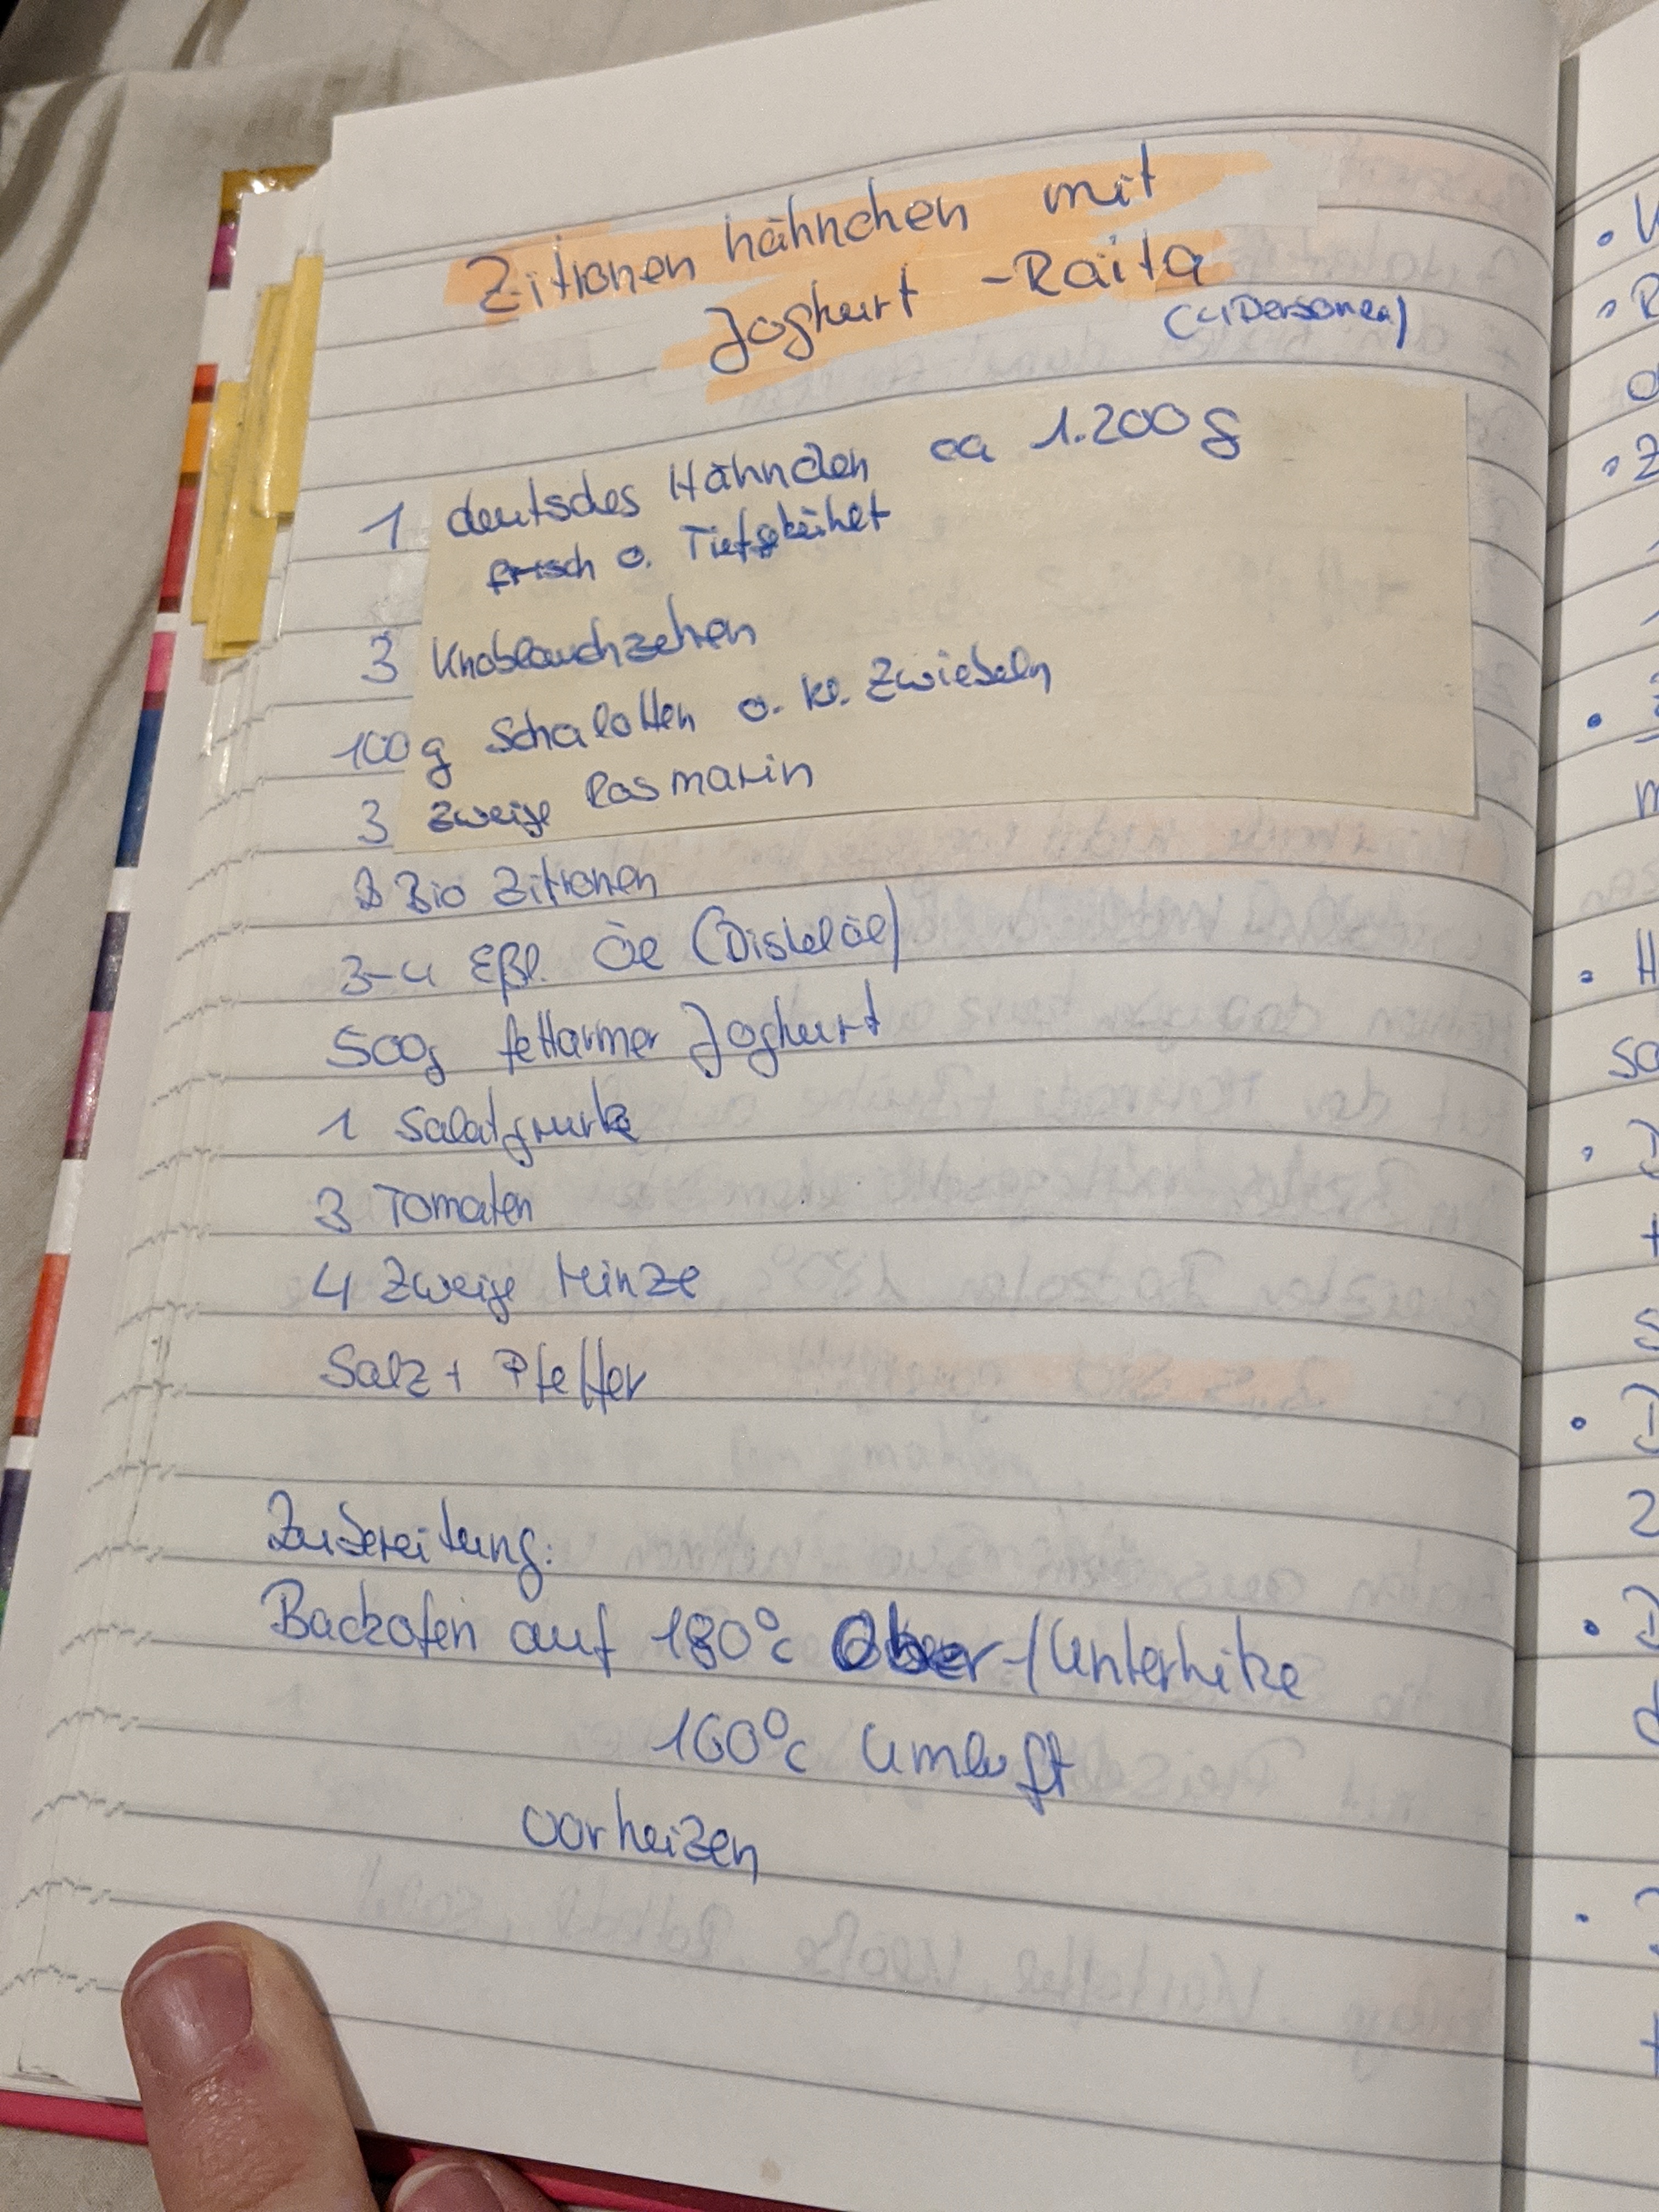 Zitronenhähnchen mit
Joghurt - Raita
(4 Personen)
1 deutsches Hähnchen ca 1.200 g
frisch o. Tiefgekühlt
3 Knoblauchzehen
100 g Schalotten o. kl. Zwiebeln
3 Zweige Rosmarin
Bio Zitronen
3-4 Eßl. Öl (Distelöl)
500g fettarmer Joghurt
1 Salatgurke
3 Tomaten
4 Zweige Minze
Salz + Pfeffer
Zubereitung:
Backofen auf 180°C Ober-/Unterhitze
160°C Umluft
vorheizen